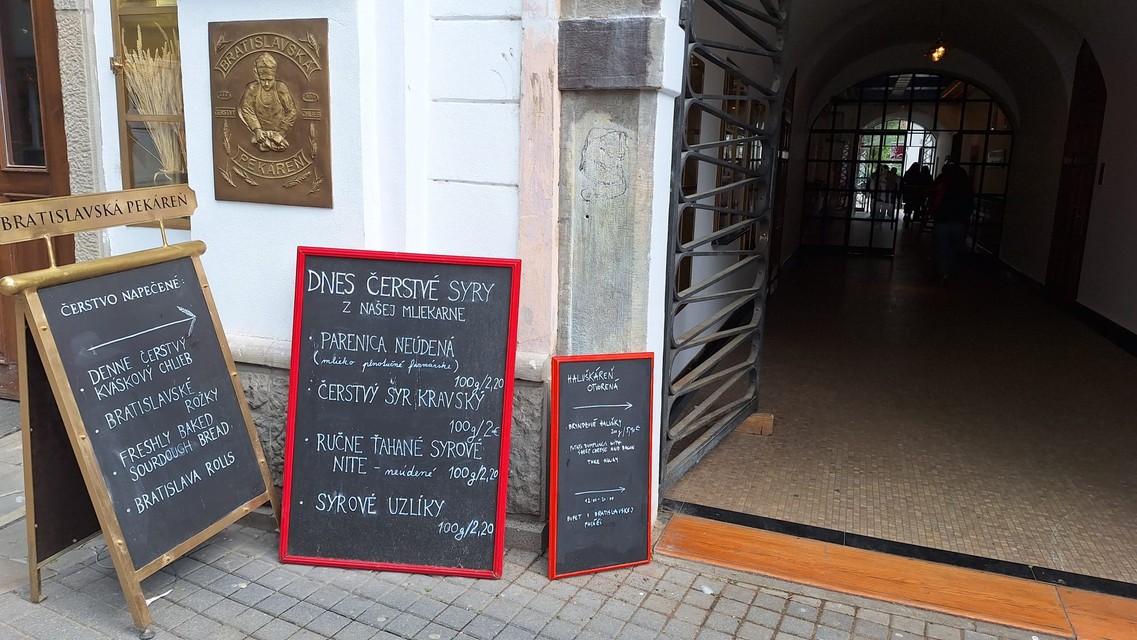 BRATISLAVSKÁ
ČERSTVÝ CHLIEB
PEKÁREŇ
BRATISLAVSKÁ PEKÁREŇ
ČERSTVO NAPEČENÉ:
• DENNE ČERSTVÝ
KVASKOVÝ CHLIEB
• BRATISLAVSKÉ
ROŽKY
• FRESHLY BAKED
SOURDOUGH BREAD
• BRATISLAVA ROLLS
DNES ČERSTVÉ SYRY
Z NAŠEJ MLIEKARNE
• PARENICA NEÚDENÁ
(mlieko plnotučné farmárske)
100g/2,20
• ČERSTVÝ SYR KRAVSKÝ
100g/2€
• RUČNE ŤAHANÉ SYROVÉ
NITE - neúdené 100g/2,20
• SYROVÉ UZLÍKY
100g/2,20
HALUŠKÁREŇ
OTVORENÁ
BRYNDZOVÉ HALUŠKY
POTATO DUMPLINGS WITH
SHEEP CHEESE AND BACON
TAKE AWAY
BUFET V BRATISLAVSKEJ